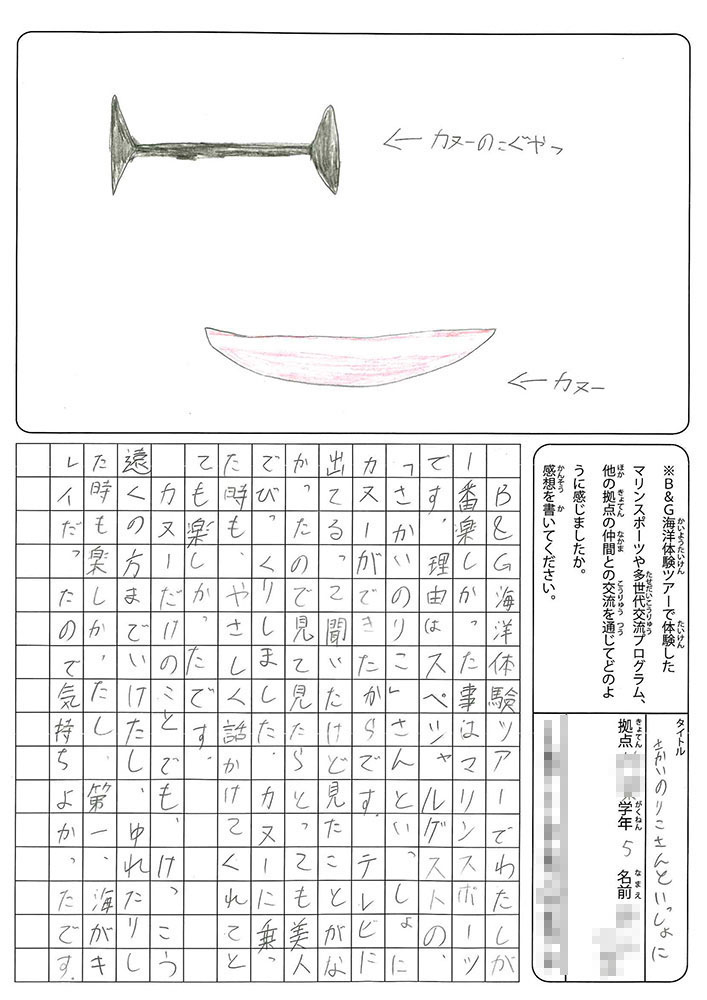 ←カヌーのこぐやつ
←カヌー
※B&G海洋体験ツアーで体験した
かいようたいけん たいけん
マリンスポーツや多世代交流プログラム、
たせだいこうりゅう
他の拠点の仲間との交流を通じてどのよ
ほか きょてん なかま こうりゅう つう
うに感じましたか。
感想を書いてください。
かんそう か
タイトル
さかいのりこさんといっしょに
拠点 学年 5 名前
きょてん がくねん なまえ
B&G海洋体験ツアーでわたしが
一番楽しかった事はマリンスポーツ
です。理由はスペシャルゲストの、
「さかいのりこ」さんといっしょに
カヌーができたからです。テレビに
出てるって聞いたけど見たことがな
かったので見て見たらとっても美人
でびっくりしました。カヌーに乗っ
た時も、やさしく話かけてくれてと
ても楽しかったです。
カヌーだけのことでも、けっこう
遠くの方までいけたし、ゆれたりし
た時も楽しかったし、第一、海がキ
レイだったので気持ちよかったです。